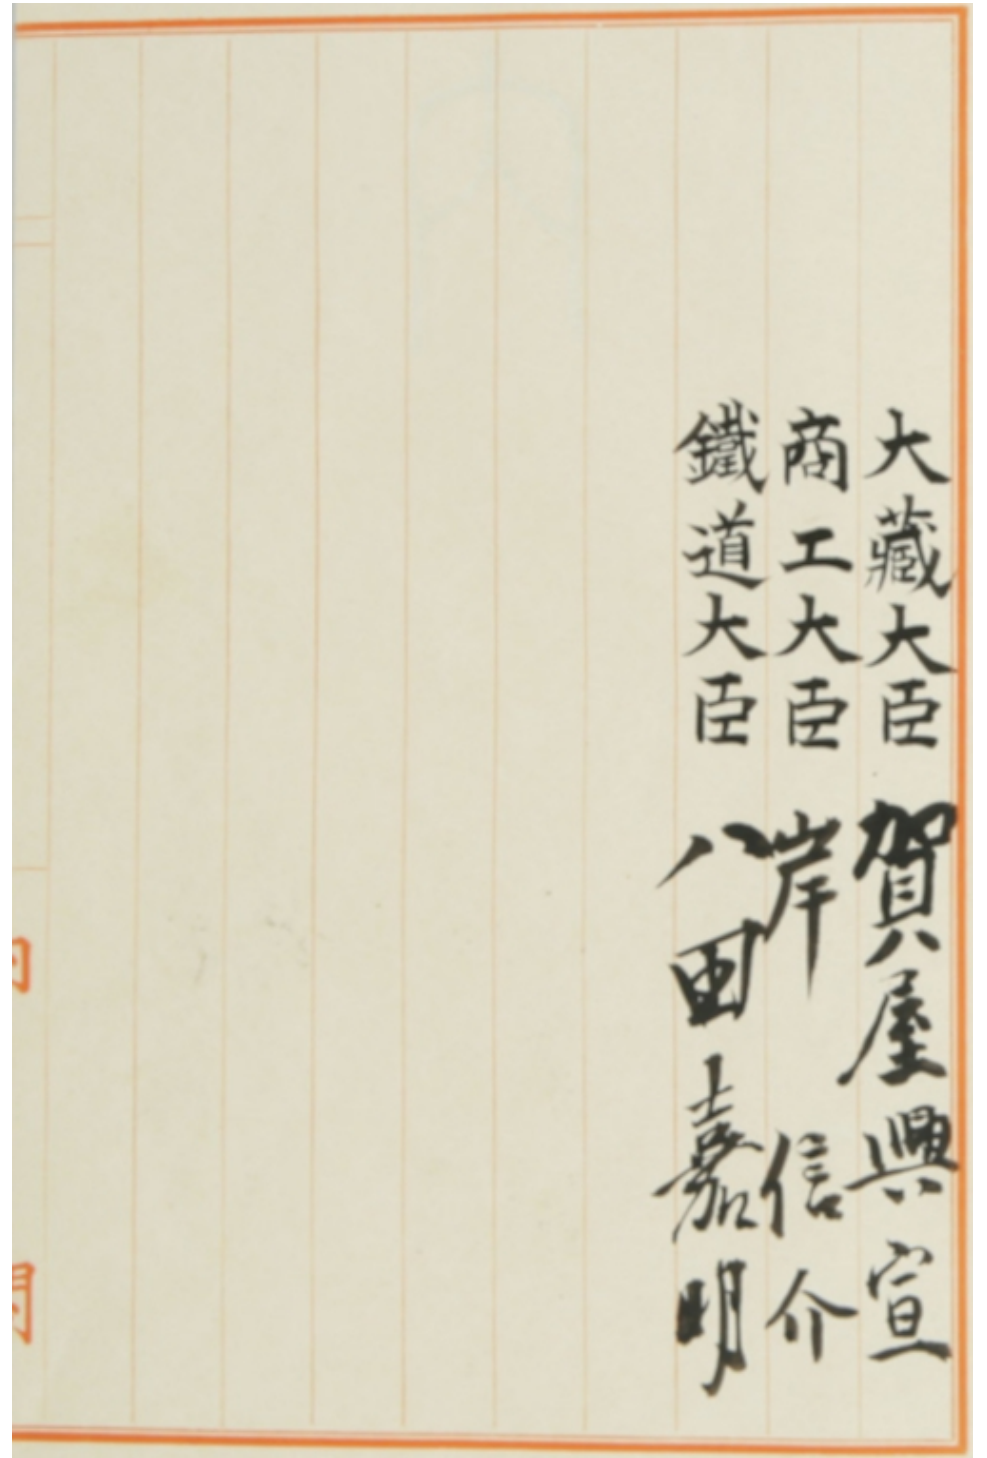 大藏大臣 賀屋興宣
商工大臣 岸信介
鐵道大臣 八田嘉明
内
閣